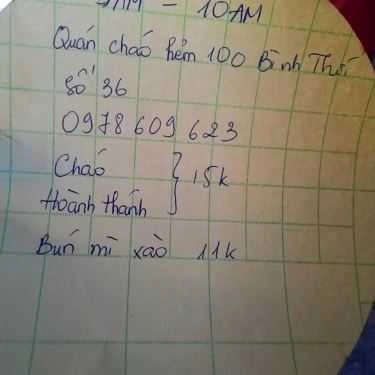 - 10AM
Quán cháo hẻm 100 Bình Thới
Số 36
0978 609 623
Cháo } 15k
Hoành thánh
Bún mì xào 11k